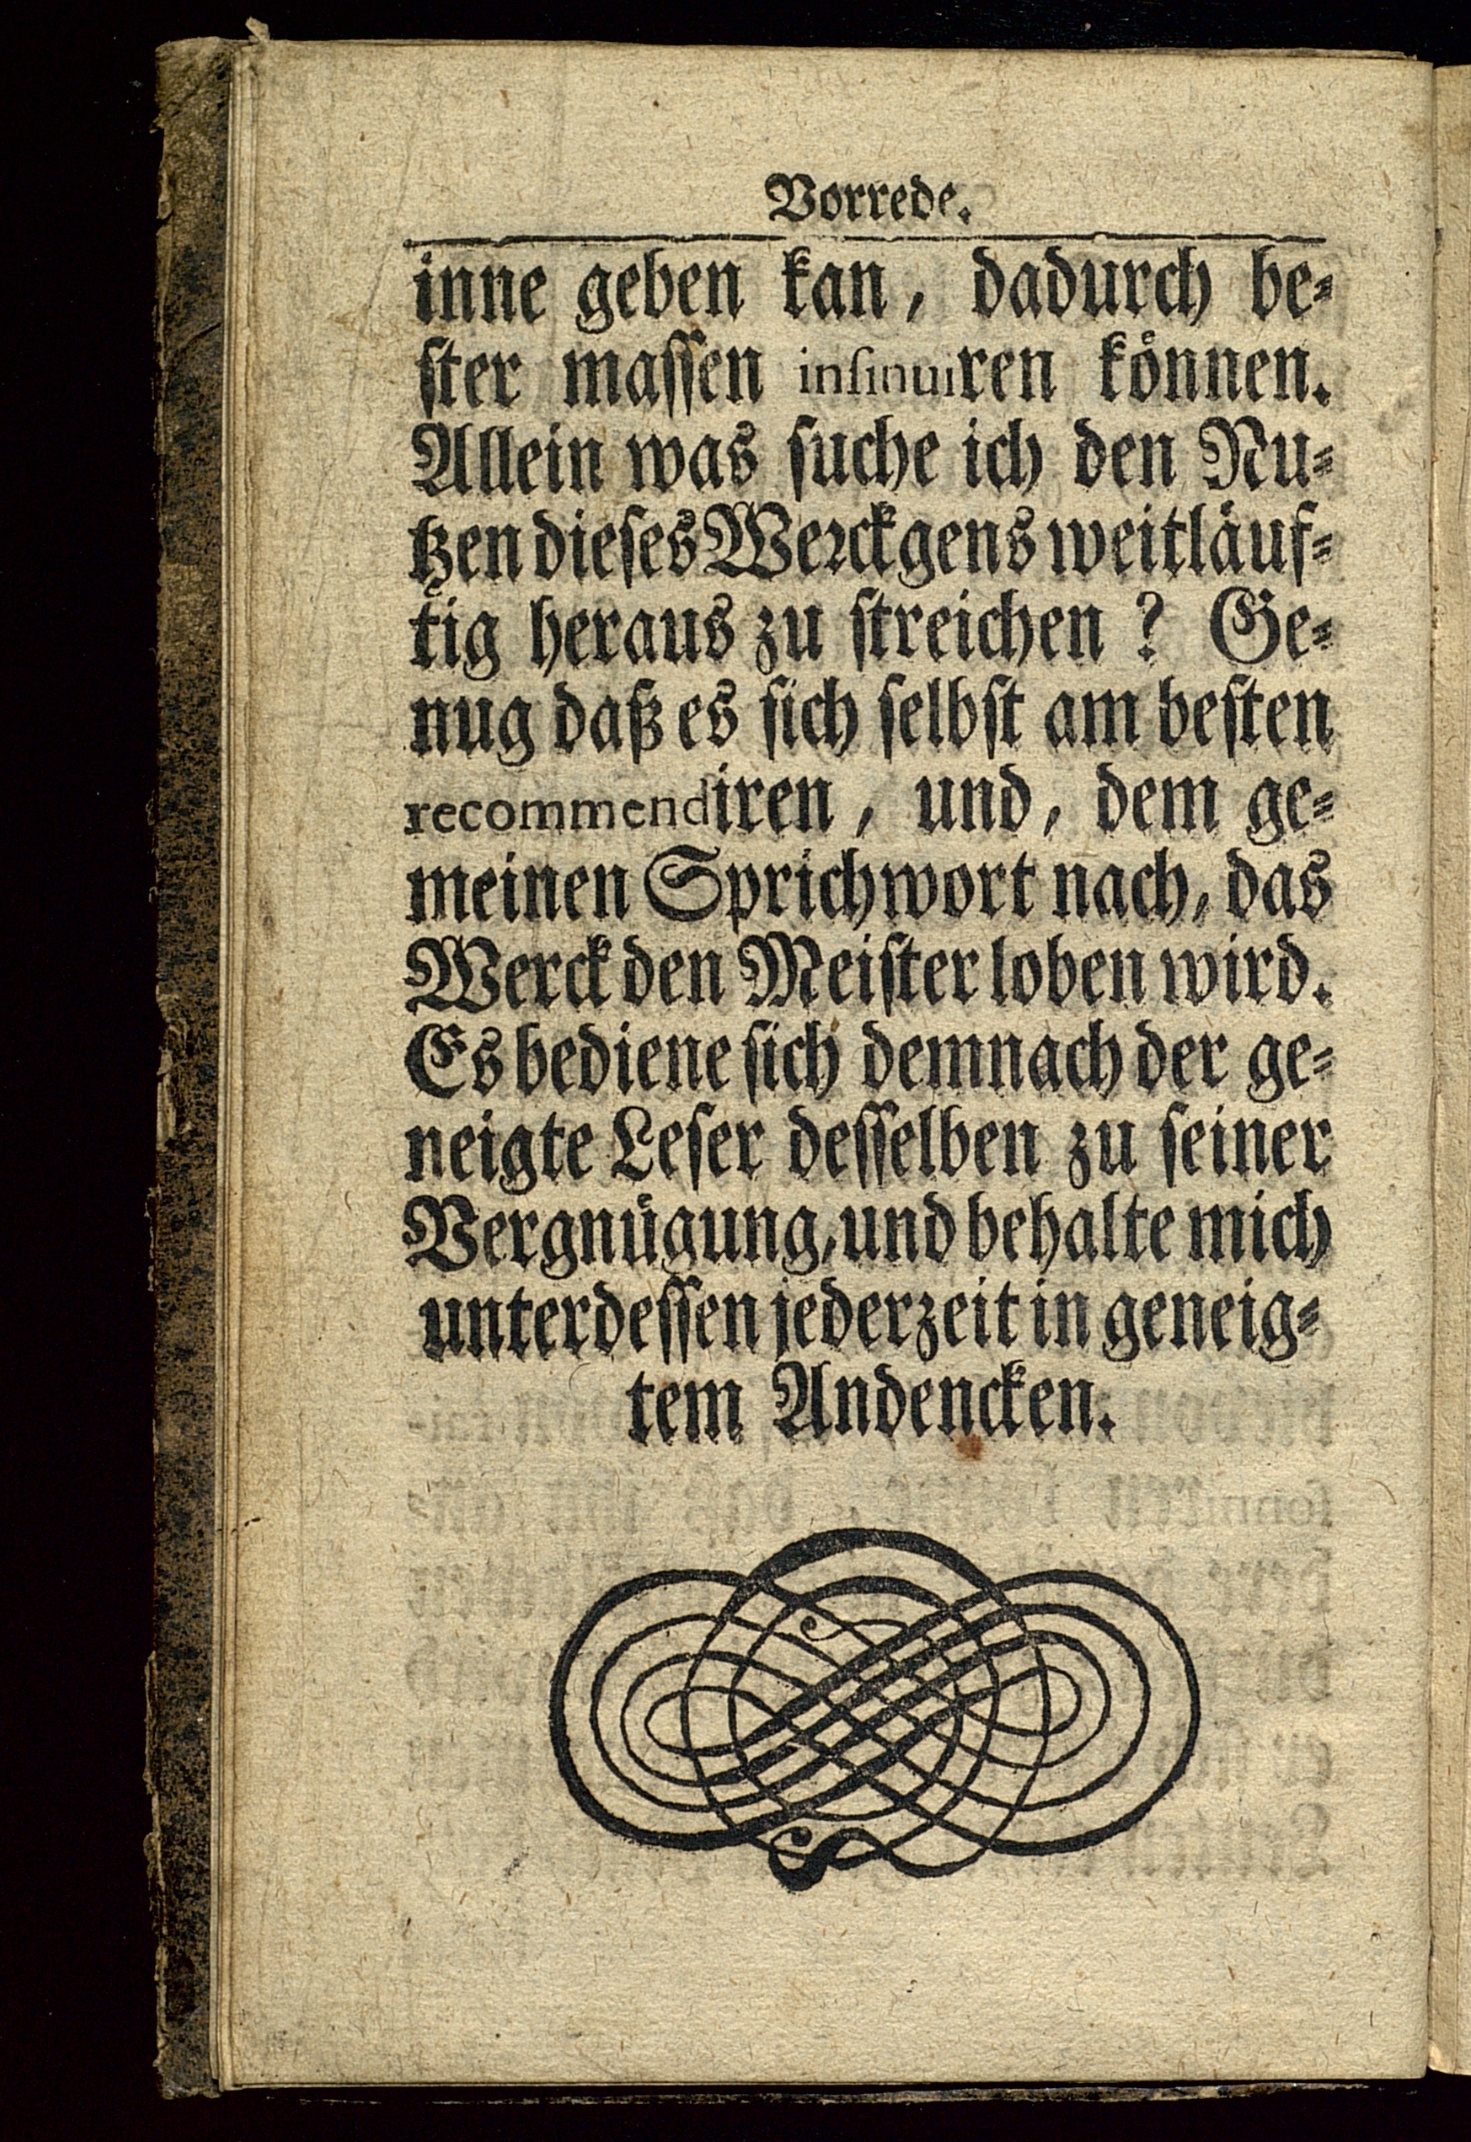 Vorrede.
inne geben kan, dadurch be⸗
ſter maſſen inſinuiren koͤnnen.
Allein was ſuche ich den Nu⸗
tzen dieſes Werckgens weitlaͤuf⸗
tig heraus zu ſtreichen? Ge⸗
nug daß es ſich ſelbſt am beſten
recommendiren, und, dem ge⸗
meinen Sprichwort nach, das
Werck den Meiſter loben wird.
Es bediene ſich demnach der ge⸗
neigte Leſer deſſelben zu ſeiner
Vergnuͤgung, und behalte mich
unterdeſſen jederzeit in geneig⸗
tem Andencken.